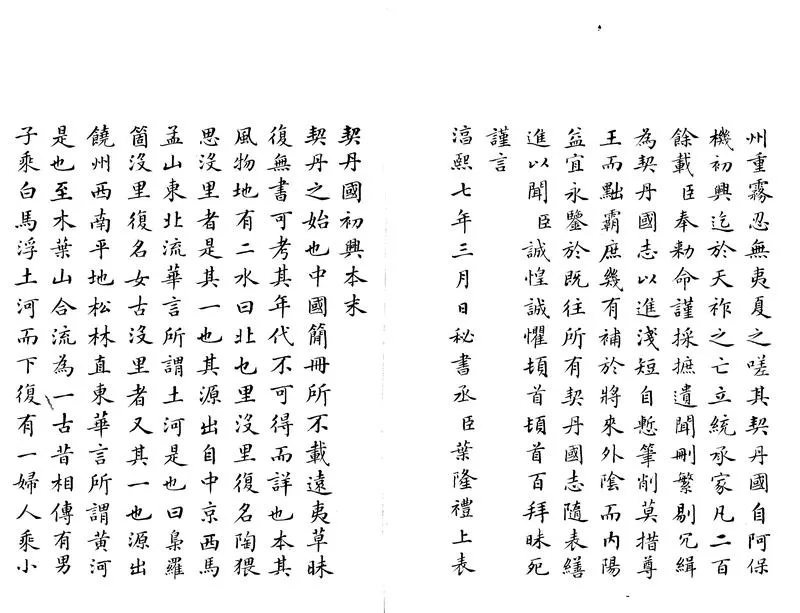 州重霧忍無夷夏之嗟其契丹國自阿保
機初興迄於天祚之亡立統承家凡二百
餘載臣奉勑命謹採摭遺聞刪繁剔冗緝
為契丹國志以進淺短自慙筆削莫措尊
王而黜霸庶幾有補於將來外陰而內陽
益宜永鑒於既往所有契丹國志隨表繕
進以聞臣誠惶誠懼頓首頓首百拜昧死
謹言
淳熙七年三月日秘書丞臣葉隆禮上表
契丹國初興本末
契丹之始也中國簡冊所不載遠夷草昧
復無書可考其年代不可得而詳也本其
風物地有二水曰北乜里沒里復名陶猥
思沒里者是其一也其源出自中京西馬
孟山東北流華言所謂土河是也曰梟羅
箇沒里復名女古沒里者又其一也源出
饒州西南平地松林直東華言所謂黄河
是也至木葉山合流為一古昔相傳有男
子乘白馬浮土河而下復有一婦人乘小